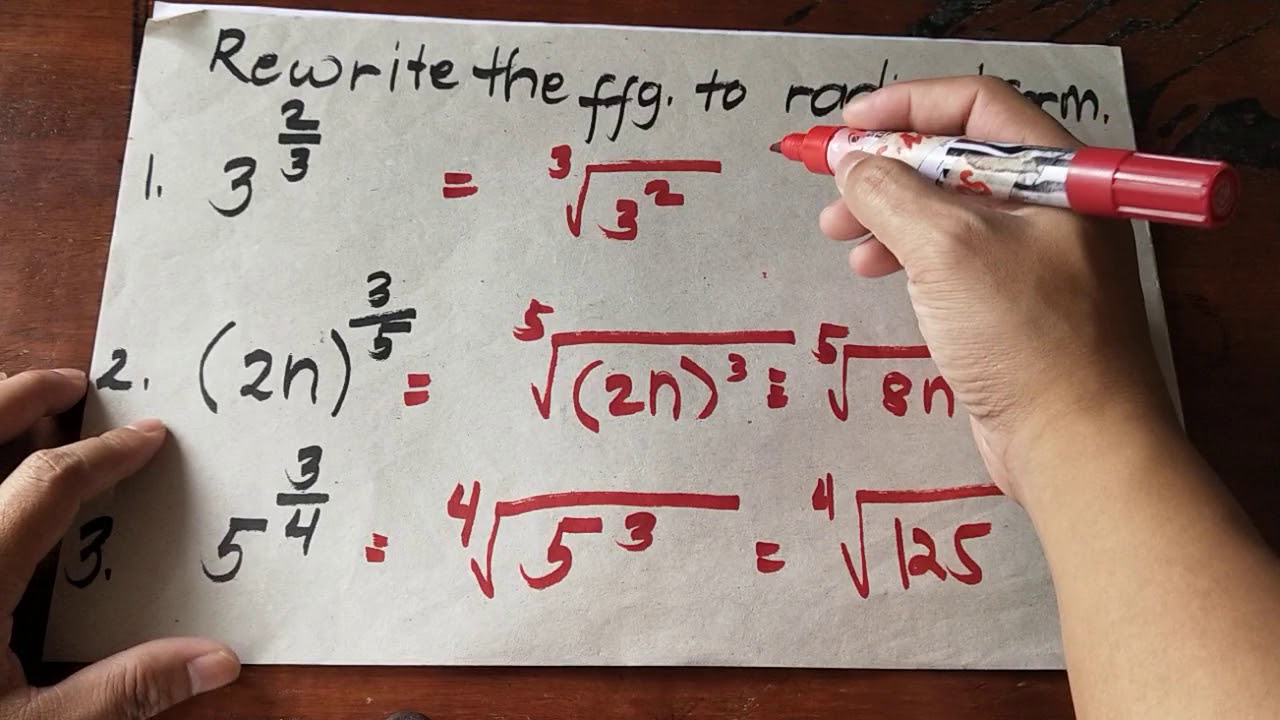 Rewrite the ffg. to
1. 3^(2/3) = ∛(3²)
2. (2n)^(3/5) = ⁵√((2n)³) = ⁵√(8n
3. 5^(3/4) = ⁴√(5³) = ⁴√(125)